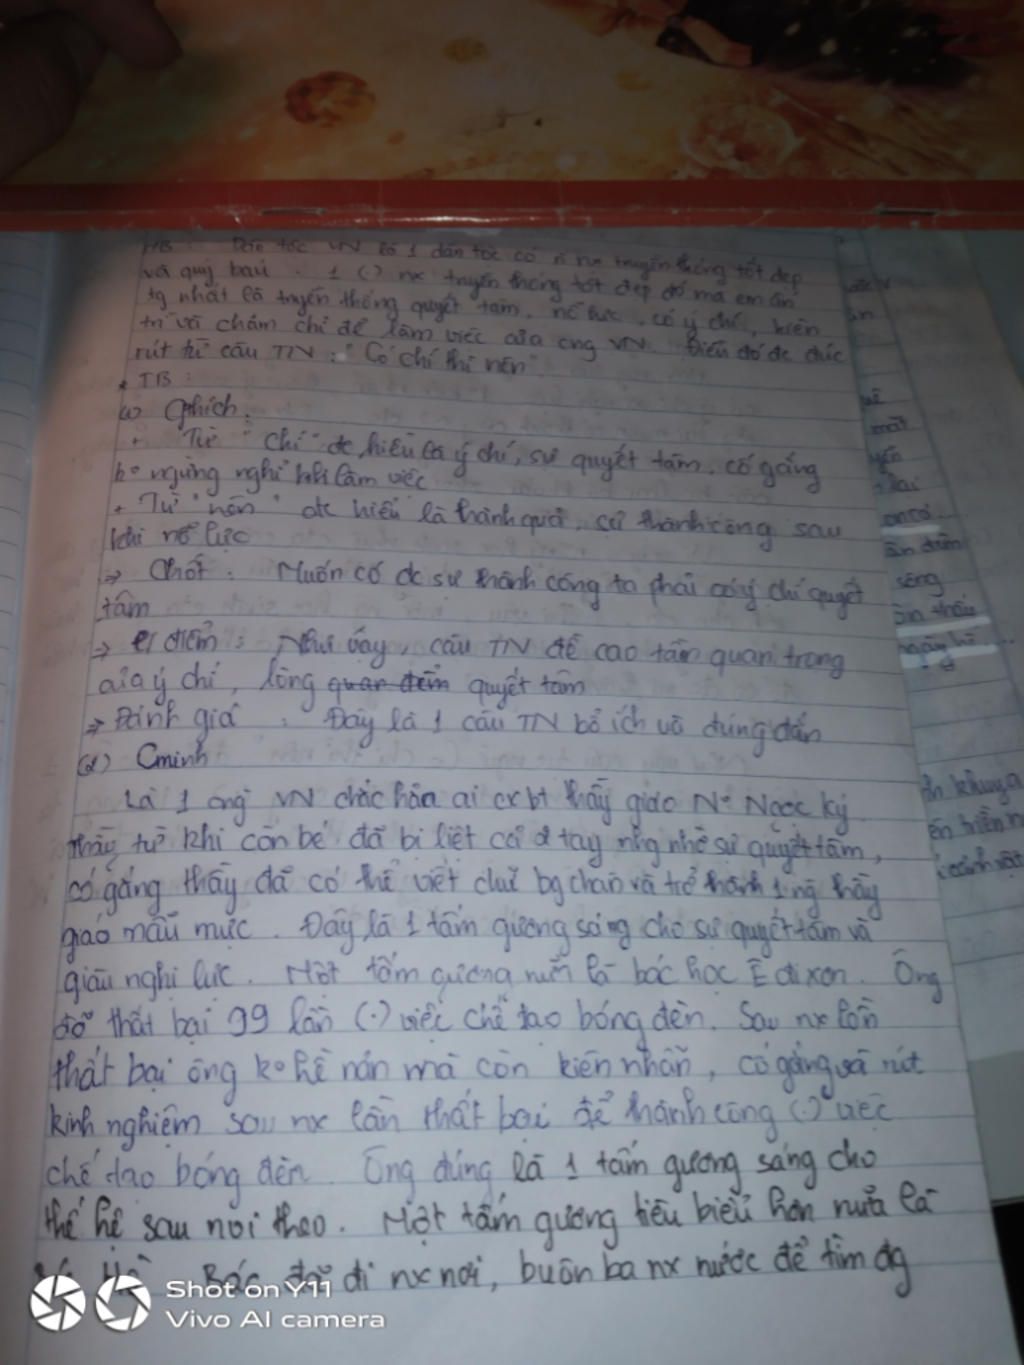 MB : Dân tộc VN là 1 dân tộc có n nx truyền thống tốt đẹp
và quý báu . 1 (.) nx truyền thống tốt đẹp đó mà em ấn
tg nhất là truyền thống quyết tâm, nỗ lực, có ý chí, kiên
trì và chăm chỉ để làm việc của cng VN. Điều đó đc đúc
rút từ câu TN : " Có chí thì nên "
* TB :
(1) Gthích :
+ Từ " chí " đc hiểu là ý chí, sự quyết tâm, cố gắng
ko ngừng nghỉ khi làm việc
+ Từ " nên " đc hiểu là thành quả, sự thành công sau
khi nỗ lực
=> Chốt : Muốn có đc sự thành công ta phải có ý chí quyết
tâm
=> điểm : Như vậy, câu TN đề cao tầm quan trọng
của ý chí, lòng quan điểm quyết tâm
=> Đánh giá : Đây là 1 câu TN bổ ích và đúng đắn
(2) Cminh
Là 1 ng VN chắc hẳn ai cx bt thầy giáo Ng Ngọc Ký
Thầy từ khi còn bé đã bị liệt cả 2 tay nhg nhờ sự quyết tâm,
cố gắng thầy đã có thể viết chữ bg chân và trở thành 1 ng thầy
giáo mẫu mực . Đây là 1 tấm gương sáng cho sự quyết tâm và
giàu nghị lực . Một tấm gương nữa là bác học Ê đi xơn . Ông
đã thất bại 99 lần (.) việc chế tạo bóng đèn. Sau nx lần
thất bại ông ko hề nản mà còn kiên nhẫn, cố gắng và rút
kinh nghiệm sau nx lần thất bại để thành công (.) việc
chế tạo bóng đèn . Ông đúng là 1 tấm gương sáng cho
thế hệ sau noi theo . Một tấm gương tiêu biểu hơn nữa là
Bác đã đi nx nơi, buôn ba nx nước để tìm đg
Shot on Y11
Vivo AI camera